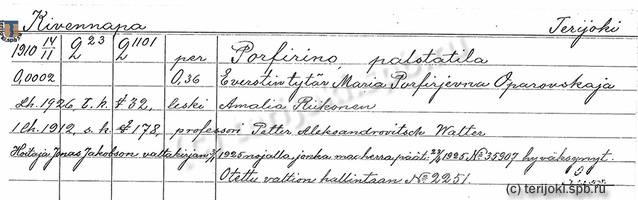 Kivennapa Terijoki
1910 14/11 G 23 G 1101 per Porfirino, palstatila
0,0002 0,36 Everstin tytär Maria Porfirjevna Oparovskaja
Lh. 1926, T. k. # 32, leski Amalia Riikonen
1 Lh. 1912, s. k. # 178, professori Petter Aleksandrovitsch Walter
Hoitaja Jonas Jakobson valtakirjan 1925 nojalla, jonka mac herra päät. 1925, No 35907 hyväksynyt.
Otettu valtion hallintaan No 2251.
(c) terijoki.spb.ru